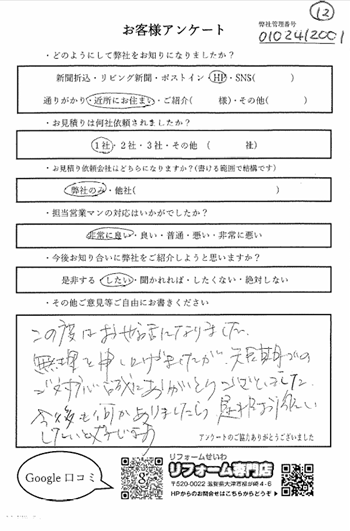 ⑫
お客様アンケート
弊社管理番号
0102412001
・どのようにして弊社をお知りになりましたか？
新聞折込・リビング新聞・ポストイン・HP・SNS(　　　)
通りがかり・近所にお住まい・ご紹介(　　　様)・その他(　　　)
・お見積りは何社依頼されましたか？
1社・2社・3社・その他 (　　　社)
・お見積り依頼会社はどちらになりますか？(書ける範囲で結構です)
弊社のみ・他社(　　　)
・担当営業マンの対応はいかがでしたか？
非常に良い・良い・普通・悪い・非常に悪い
・今後お知り合いに弊社をご紹介しようと思いますか？
是非する・したい・聞かれれば・したくない・絶対しない
・その他ご意見等ご自由にお書きください
この度はお世話になりました。
無理を申し上げましたが、短期での
ご対応誠にありがとうございました。
今後も何かありましたら是非お願い
したいと
アンケートのご協力ありがとうございました
Google口コミ
リフォームせいわ
リフォーム専門店
〒520-0022 滋賀県大津市柳が崎4-6
HPからのお問合せはこちらからどうぞ